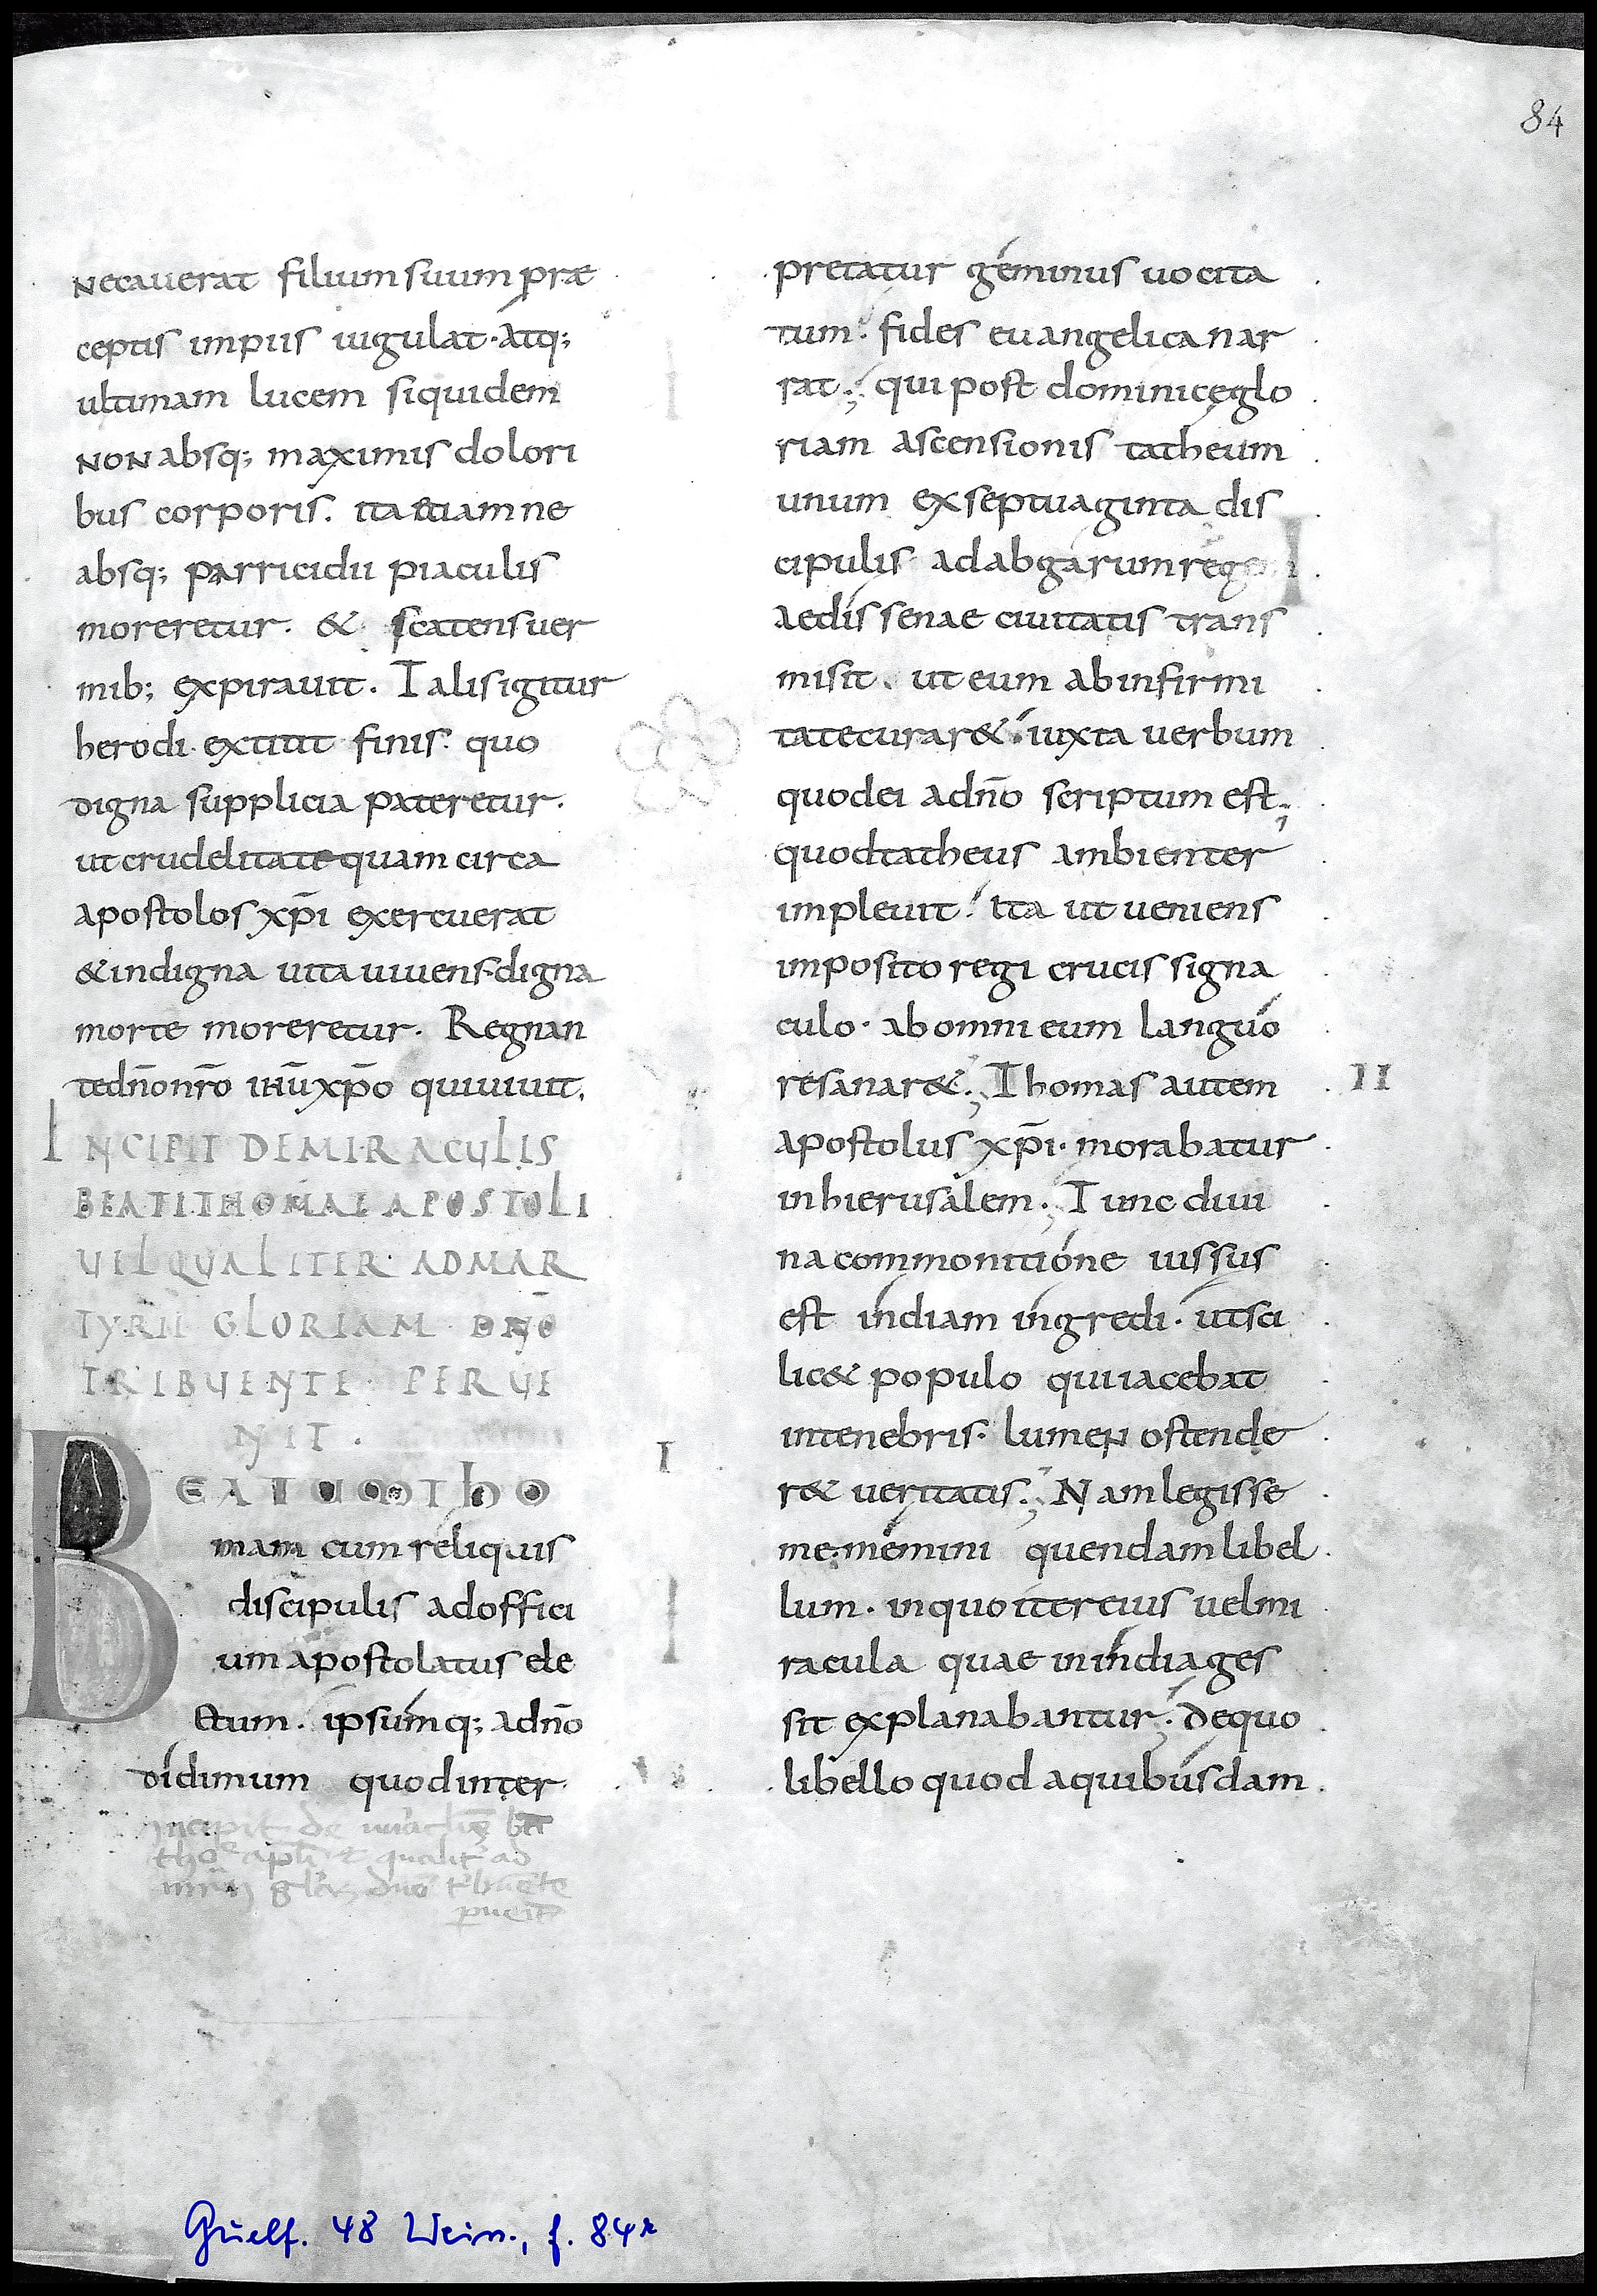 84
necauerat filium suum prae
ceptis impiis iugulat. atq;
ultimam lucem siquidem
non absq; maximis dolori
bus corporis. ita etiam ne
absq; parricidii piaculis
moreretur. & scatens uer
mib; expirauit. Talis igitur
herodi extitit finis. quo
digna supplicia pateretur.
ut crudelitate quam circa
apostolos xp̄i exercuerat
& indigna uita uiuens. digna
morte moreretur. Regnan
te dn̄o nr̄o ihū xp̄o qui uiuit.
INCIPIT DE MIRACULIS
BEATI THOMAE APOSTOLI
UEL QUALITER AD MAR
TYRII GLORIAM DN̄O
TRIBUENTE PERUE
NIT.
I
BEATUM THO
mam cum reliquis
discipulis ad offici
um apostolatus ele
ctum. ipsumq; a dn̄o
didimum quod inter
pretatur geminus uocita
tum. fides euangelica nar
rat; qui post dominicę glo
riam ascensionis tatheum
unum ex septuaginta dis
cipulis ad abgarum rege
aedissenae ciuitatis trans
misit. ut eum ab infirmi
tate curar&. iuxta uerbum
quod ei a dn̄o scriptum est;
quod tatheus ambienter
impleuit. Ita ut ueniens
imposito regi crucis signa
culo. ab omni eum languo
re sanar&; Thomas autem
II
apostolus xp̄i. morabatur
in hierusalem; Tunc diui
na commonitione iussus
est indiam ingredi. ut sci
lic& populo qui iacebat
in tenebris. lumen ostende
r& ueritatis; Nam legisse
me memini quendam libel
lum. in quo iter eius uel mi
racula quae in india ges
sit explanabantur; de quo
libello quod a quibusdam
incepit de
apl̄i qualit̄ ad
dn̄o
Guelf. 48 Weiss., f. 84r